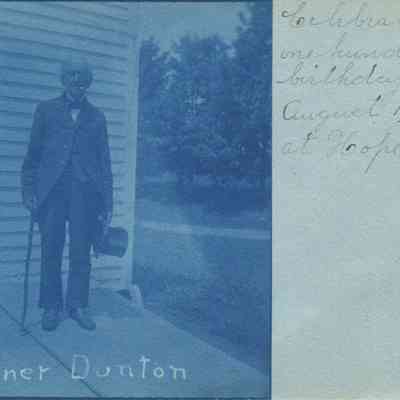 ner Dunton
Celebra
one hund
birthday
August 1
at Hope